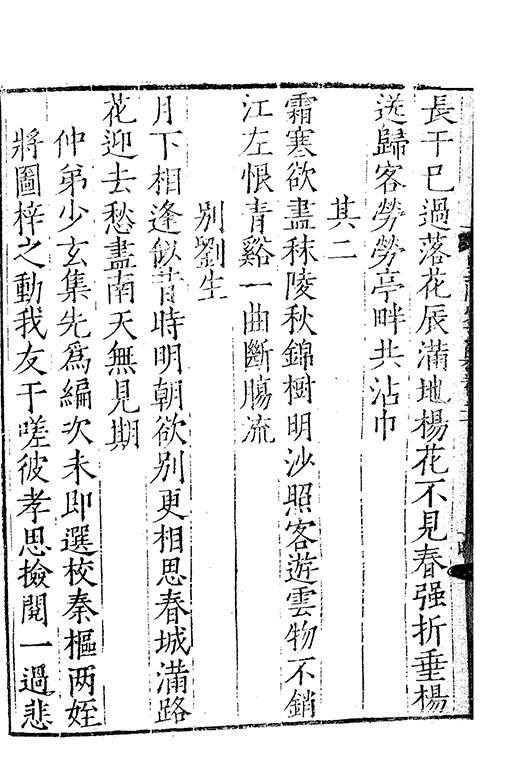 長干已過落花辰滿地楊花不見春强折垂楊
送歸客勞勞亭畔共沾巾
其二
霜寒欲盡秣陵秋錦樹明沙照客遊雲物不銷
江左恨青谿一曲斷膓流
別劉生
月下相逢似昔時明朝欲別更相思春城滿路
花迎去愁盡南天無見期
仲弟少玄集先爲編次未即選校秦樞两姪
將圖梓之動我友于嗟彼孝思撿閱一過悲